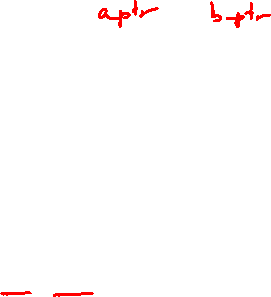 a_ptr b_ptr